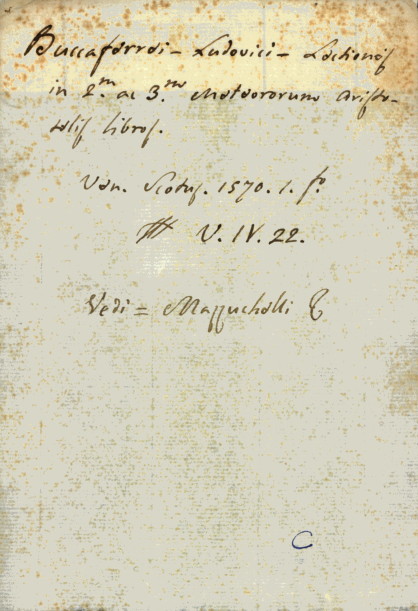 Buccaferrei - Ludovici - Lectiones
in 2.m ac 3.m Meteororum Aristo-
telis libros.
Ven. Scotus. 1570. 1. fo
V. IV. 22.
Vedi = Mazzuchelli
C